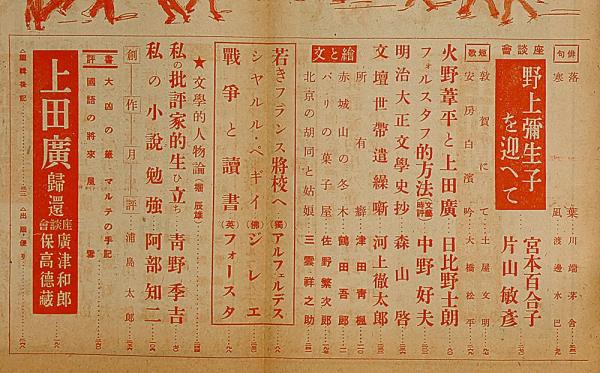 俳句
落葉 川端茅舎
寒凪 渡邊水巴
座談會
野上彌生子を迎へて
宮本百合子
片山敏彦
短歌
敦賀にて 土屋文明
安房白濱吟 大橋松平
火野葦平と上田廣 日比野士朗
フォルスタフ的方法 文藝時評 中野好夫
明治大正文學史抄 森山啓
文壇世帶遣繰噺 河上徹太郎
繪と文
所有癖 津田青楓
赤城山の冬木 鶴田吾郎
パリの菓子屋 佐野繁次郎
北京の胡同と姑娘 三雲祥之助
若きフランス將校へ (獨)アルフェルデス
シャルル・ペギイ (佛)ジレエ
戰爭と讀書 (英)フォースタ
★文學的人物論 (堀辰雄)
私の批評家的生ひ立ち 青野季吉
私の小説勉強 阿部知二
創作月評 浦島太郎
書評
大凶の籤 マルテの手記
國語の將來 風雪
上田廣歸還座談會
廣津和郎
保高德藏
△編輯後記 △出版便り